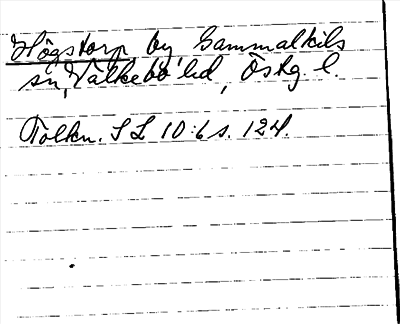 Högstorp by, Gammalkils
sn, Valkebo hd, Östg. l.
Tolkn. SL 10:6 s. 124.